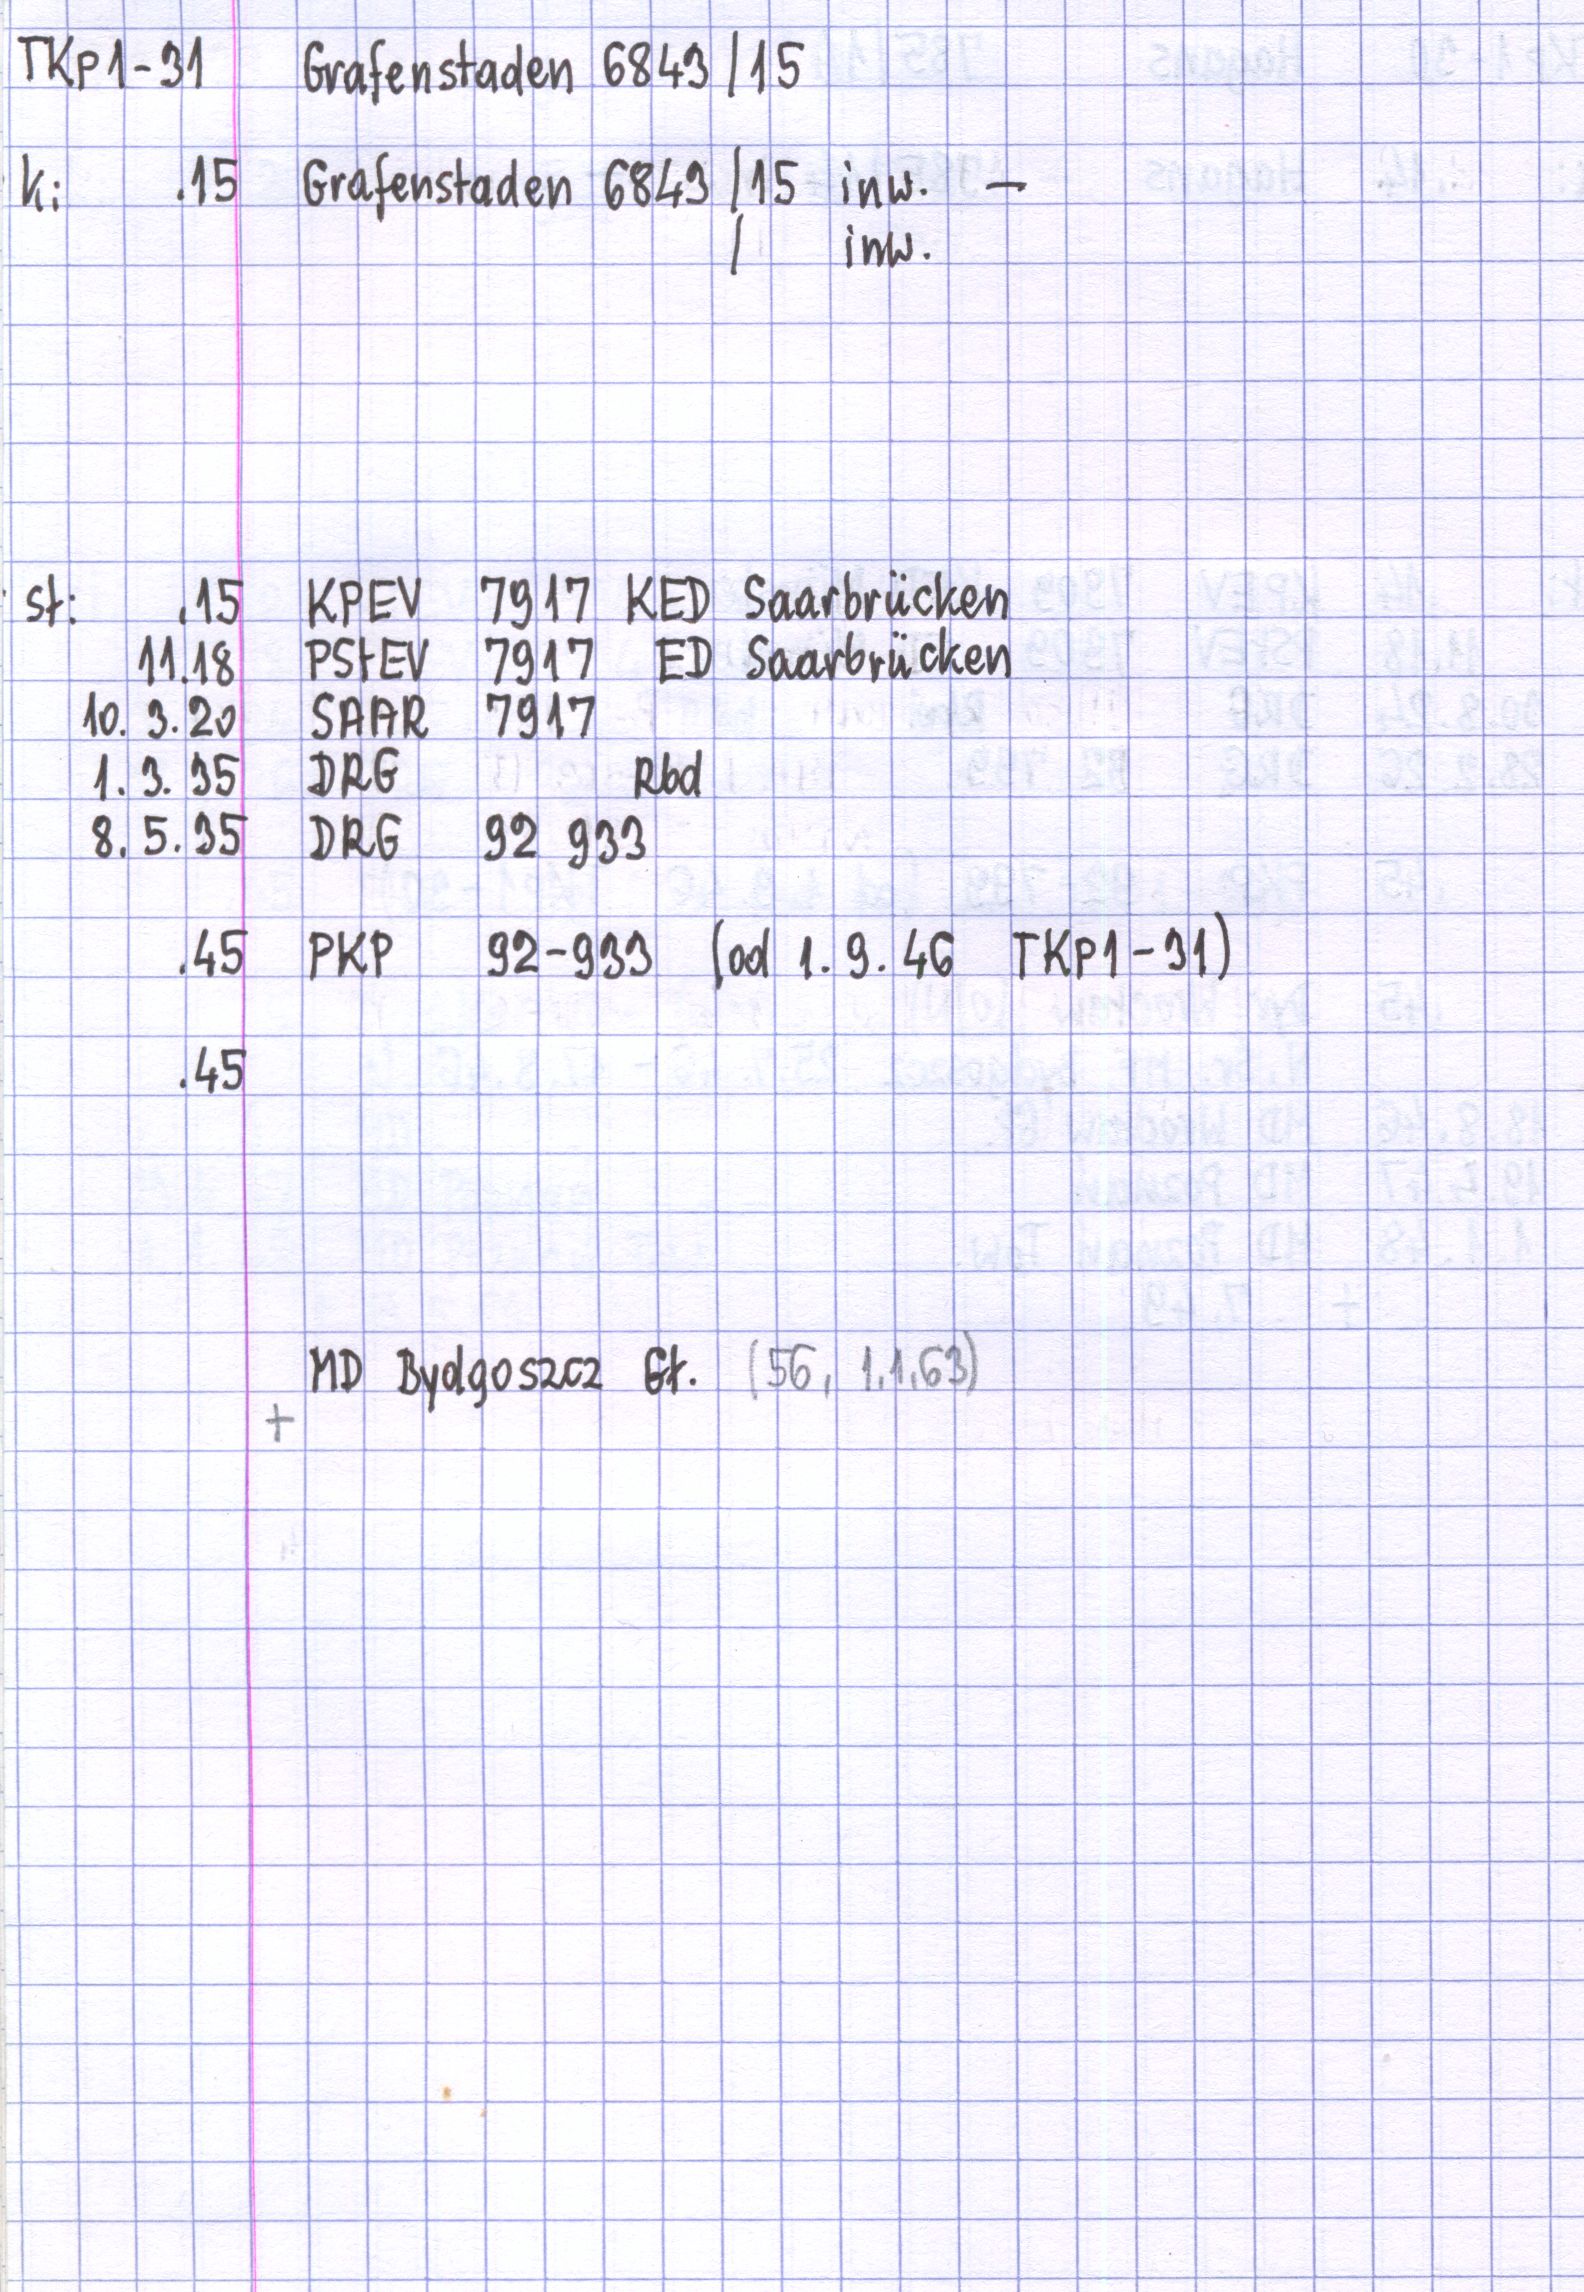 TKp1-31 Grafenstaden 6843/15
k: .15 Grafenstaden 6843/15 inw. —
/ inw.
st: .15 KPEV 7917 KED Saarbrücken
11.18 PStEV 7917 ED Saarbrücken
10. 3.20 SAAR 7917
1. 3. 35 DRG Rbd
8. 5. 35 DRG 92 933
.45 PKP 92-933 (od 1. 9. 46 TKp1-31)
.45
MD Bydgoszcz Gł. (56, 1.1.63)
+